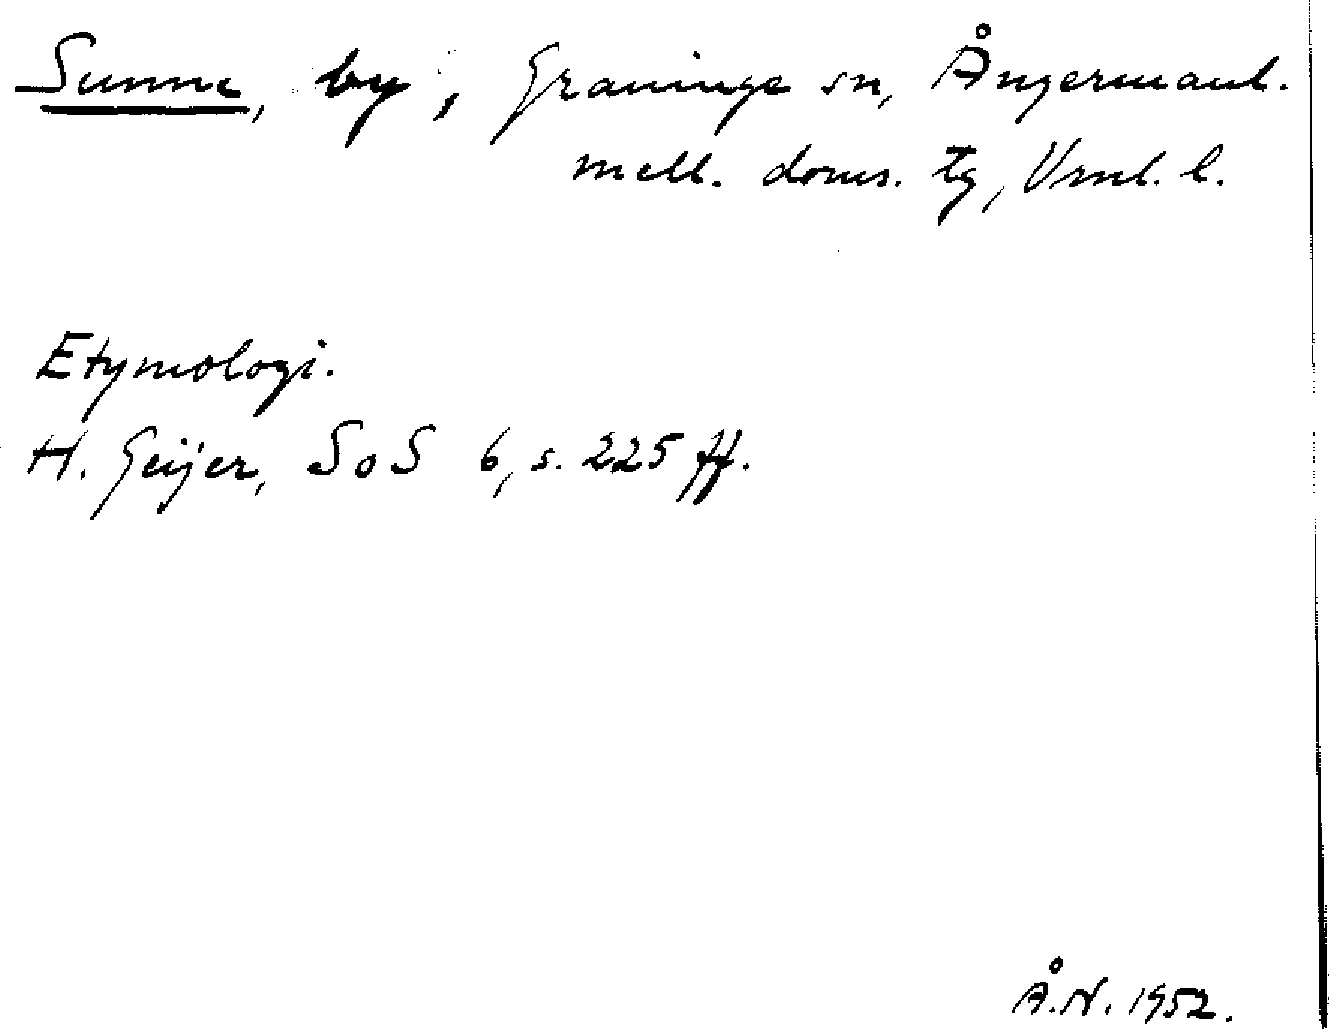 Sunne, by, Graninge sn, Ångermanl.
mell. doms. tg, Vrnl. l.
Etymologi.
H. Geijer, SoS 6, s. 225 ff.
Å.N. 1952.